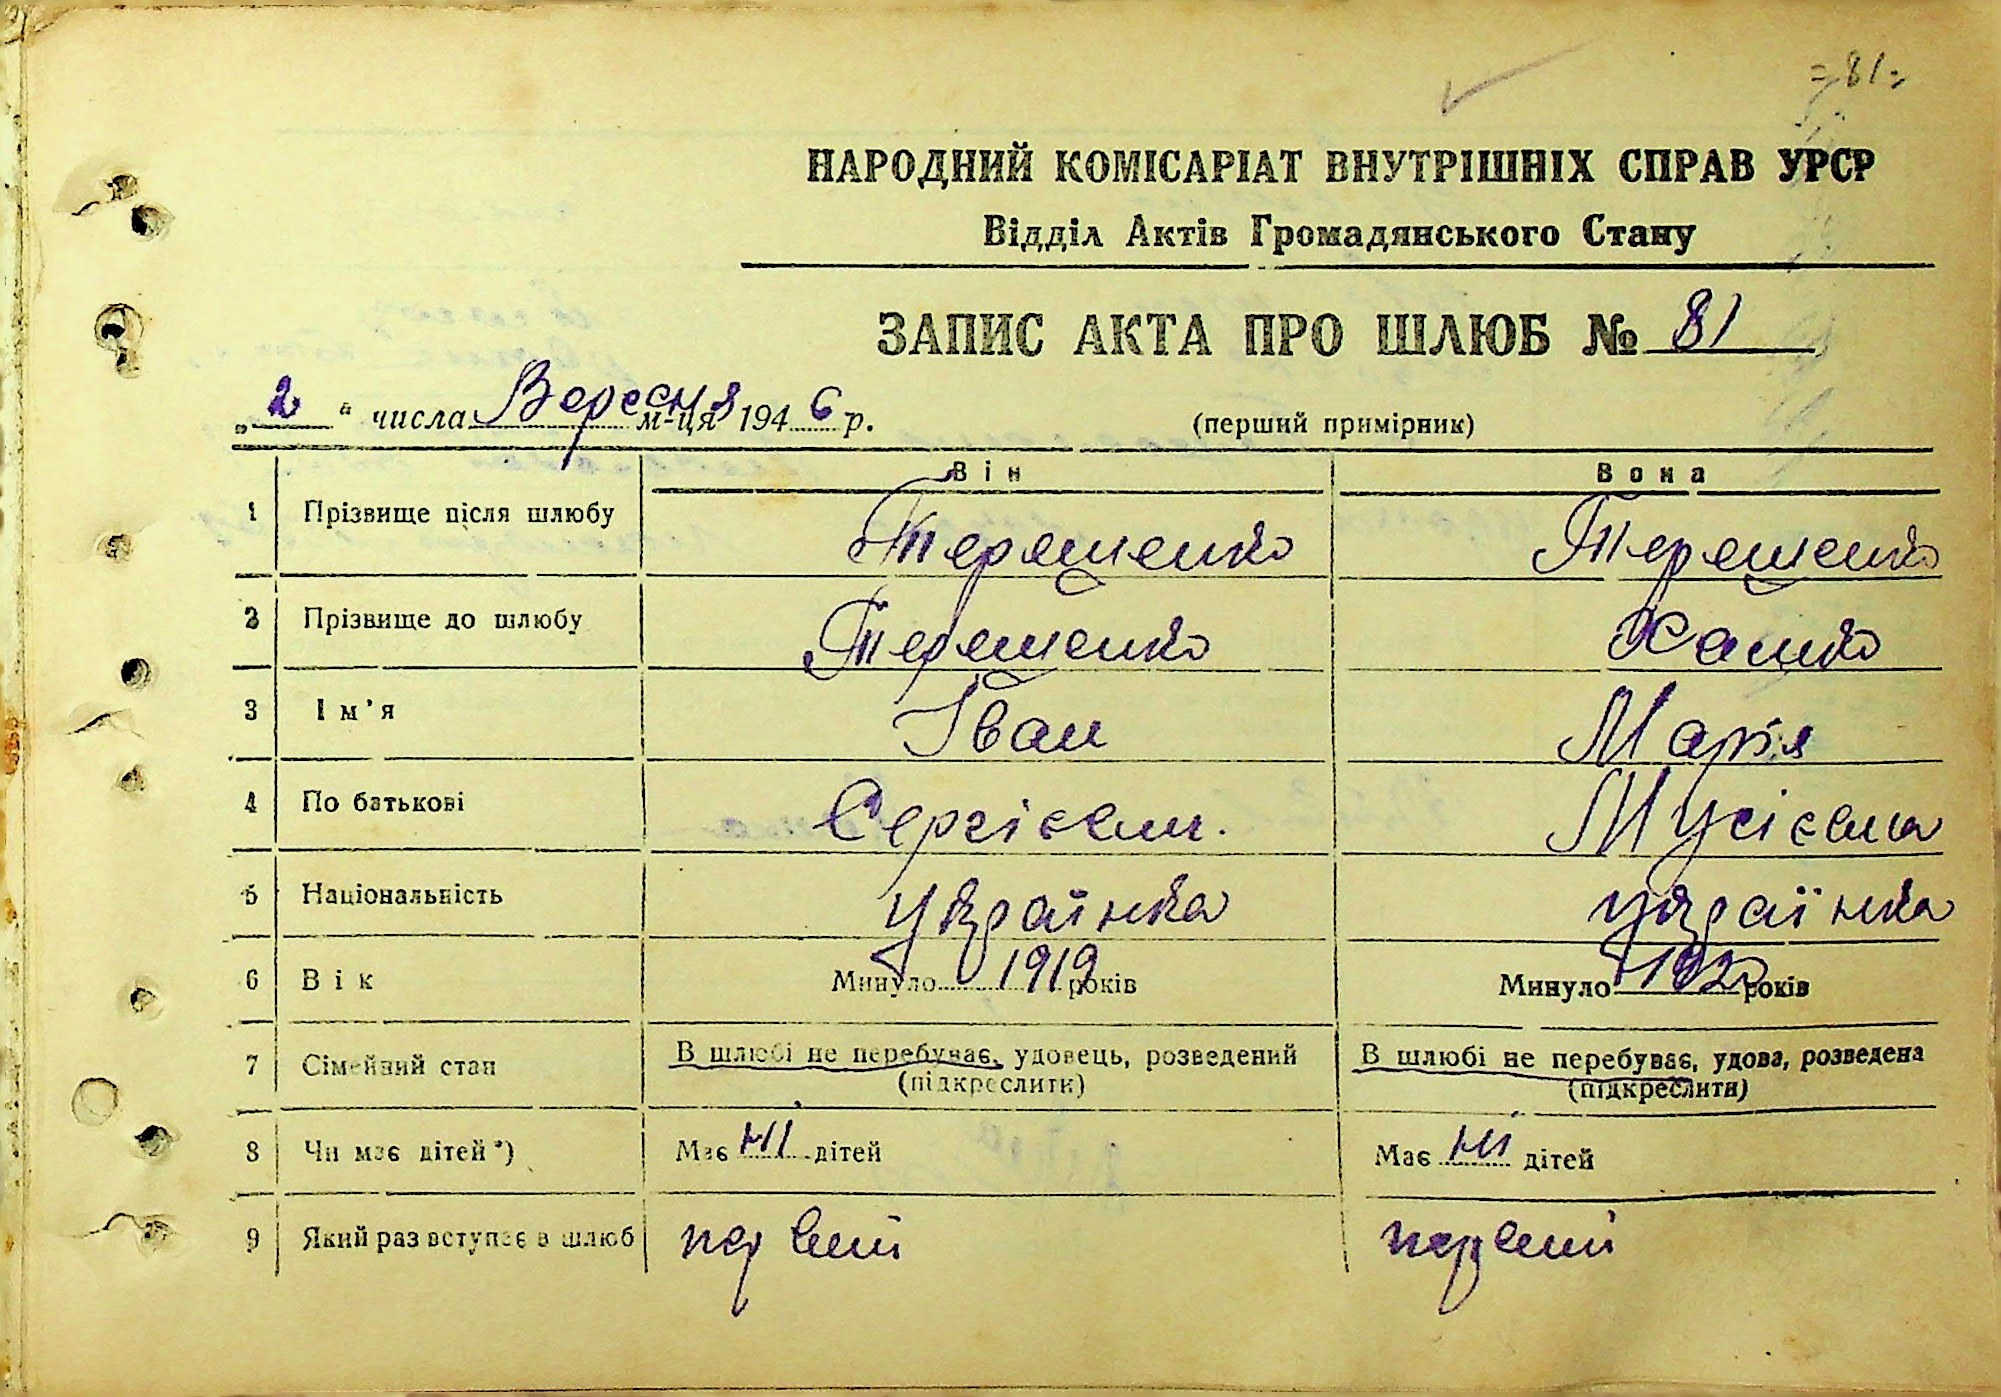 =81=
НАРОДНИЙ КОМІСАРІАТ ВНУТРІШНІХ СПРАВ УРСР
Відділ Актів Громадянського Стану
ЗАПИС АКТА ПРО ШЛЮБ № 81
„2“ числа Вересня м-ця 1946 р. (перший примірник)
Він Вона
1 Прізвище після шлюбу Терещенко Терещенко
2 Прізвище до шлюбу Терещенко
3 Ім'я Іван Марія
4 По батькові Сергієвич. Мусієвна
5 Національність українка українка
6 Вік Минуло 1919 років Минуло 192 років
7 Сімейний стан В шлюбі не перебуває, удовець, розведений В шлюбі не перебуває, удова, розведена
(підкреслити) (підкреслити)
8 Чи має дітей*) Має ні дітей Має ні дітей
9 Який раз вступає в шлюб первий первий